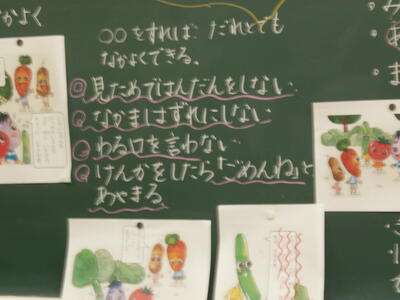 かよく
○○をすれば、だれとでも
なかよくできる。
◎見ためではんだんをしない
◎なかまはずれにしない
◎わる口を言わない
◎けんかをしたら「ごめんね」と
あやまる